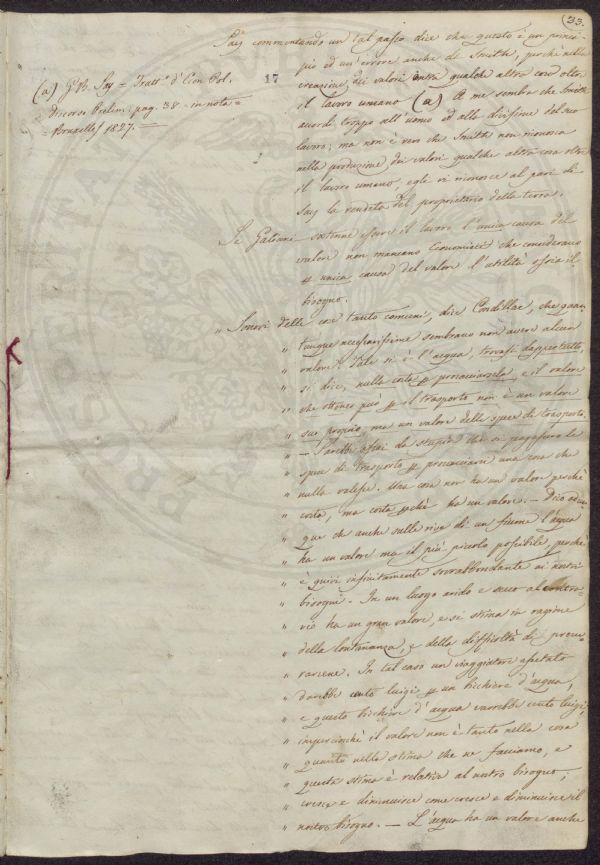 33.
Say commentando un tal passo dice che questo è un princi-
pio ed un'errore anche di Smith, perchè nella
creazione dei valori entra qualche altra cosa oltre
il lavoro umano (a) A me sembra che Smith
accordi troppo all'uomo ed alla divisione del suo
lavoro; ma non è vero che Smith non riconosca
nella produzione dei valori qualche altra cosa oltre
il lavoro umano, egli vi riconosce al pari di
Say la rendita del proprietario della terra.
(a) G. B. Say = Tratt.º d'Econ Pol.
discorso Prelim: pag. 38 - in nota =
= Bruxelles 1827. =
17
Se Galiani sostenne essere il lavoro l'unica causa del
valore non mancano Economisti che considerano
p unica causa del valore l'utilità ossia il
bisogno.
" Sonovi delle cose tanto comuni, dice Condillac, che quan-
" tunque necessarissime sembrano non avere alcun
" valore. Tale si è l'acqua, trovasi dappertutto,
" si dice, nulla costa p procacciarsela e il valore
" che ottener può p il trasporto non è un valore
" suo proprio, ma un valore delle spese di trasporto.
" — Sarebbe assai da stupire che si pagassero le
" spese di trasporto p procacciarsi una cosa che
" nulla valesse. Una cosa non ha un valore perchè
" costa, ma costa pchè ha un valore. — Dico adun-
" que che anche sulle rive di un fiume l'acqua
" ha un valore ma il più piccolo possibile, perchè
" è quivi infinitamente sovrabbondante ai nostri
" bisogni. In un luogo arido e secco al contra-
" rio ha un gran valore, e si stima in ragione
" della lontananza, e della difficoltà di procu-
" rarsene. In tal caso un viaggiatore assetato
" darebbe cento luigi p un bicchiere d'acqua,
" e questo bicchiere d'acqua varrebbe cento luigi;
" imperciocchè il valore non è tanto nella cosa
" quanto nella stima che ne facciamo, e
" questa stima è relativa al nostro bisogno;
" cresce e diminuisce come cresce e diminuisce il
" nostro bisogno. — L'acqua ha un valore anche